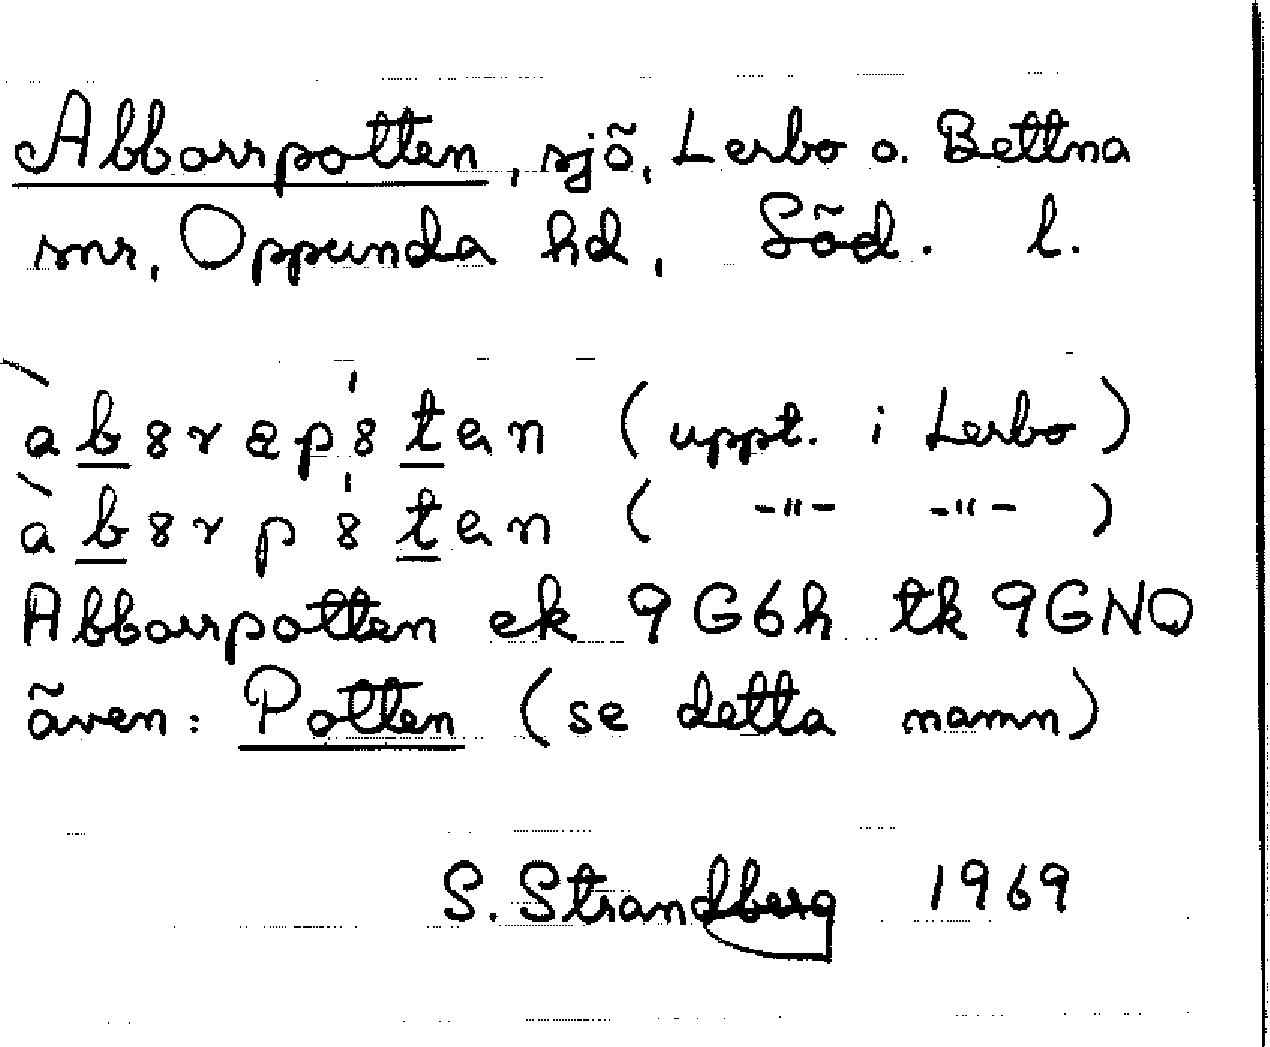 Abborrpotten, sjö, Lerbo o. Bettna
snr, Oppunda hd, Söd. l.
àb8rəp'8ten (uppt. i Lerbo)
àb8rp'8ten ( -"- -"- )
Abborrpotten ek 9G6h tk 9GNO
även: Potten (se detta namn)
S. Strandberg 1969